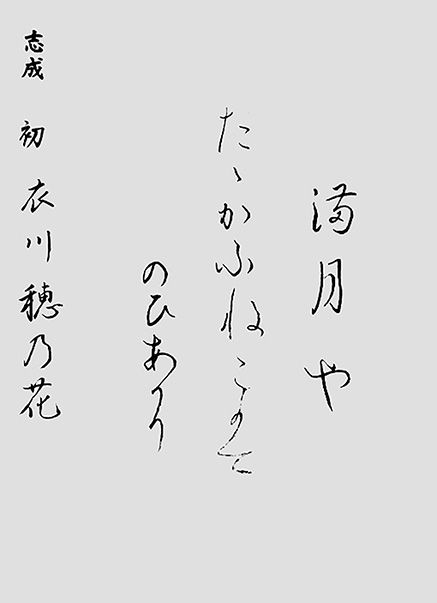 満月や
たゝかふねこは
のひあかり
志成 初 衣川穂乃花